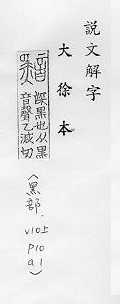 說文解字
大徐本
黯
深黑也从黑
音聲乙減切
〈黑部,
v10上
p10
a1〉